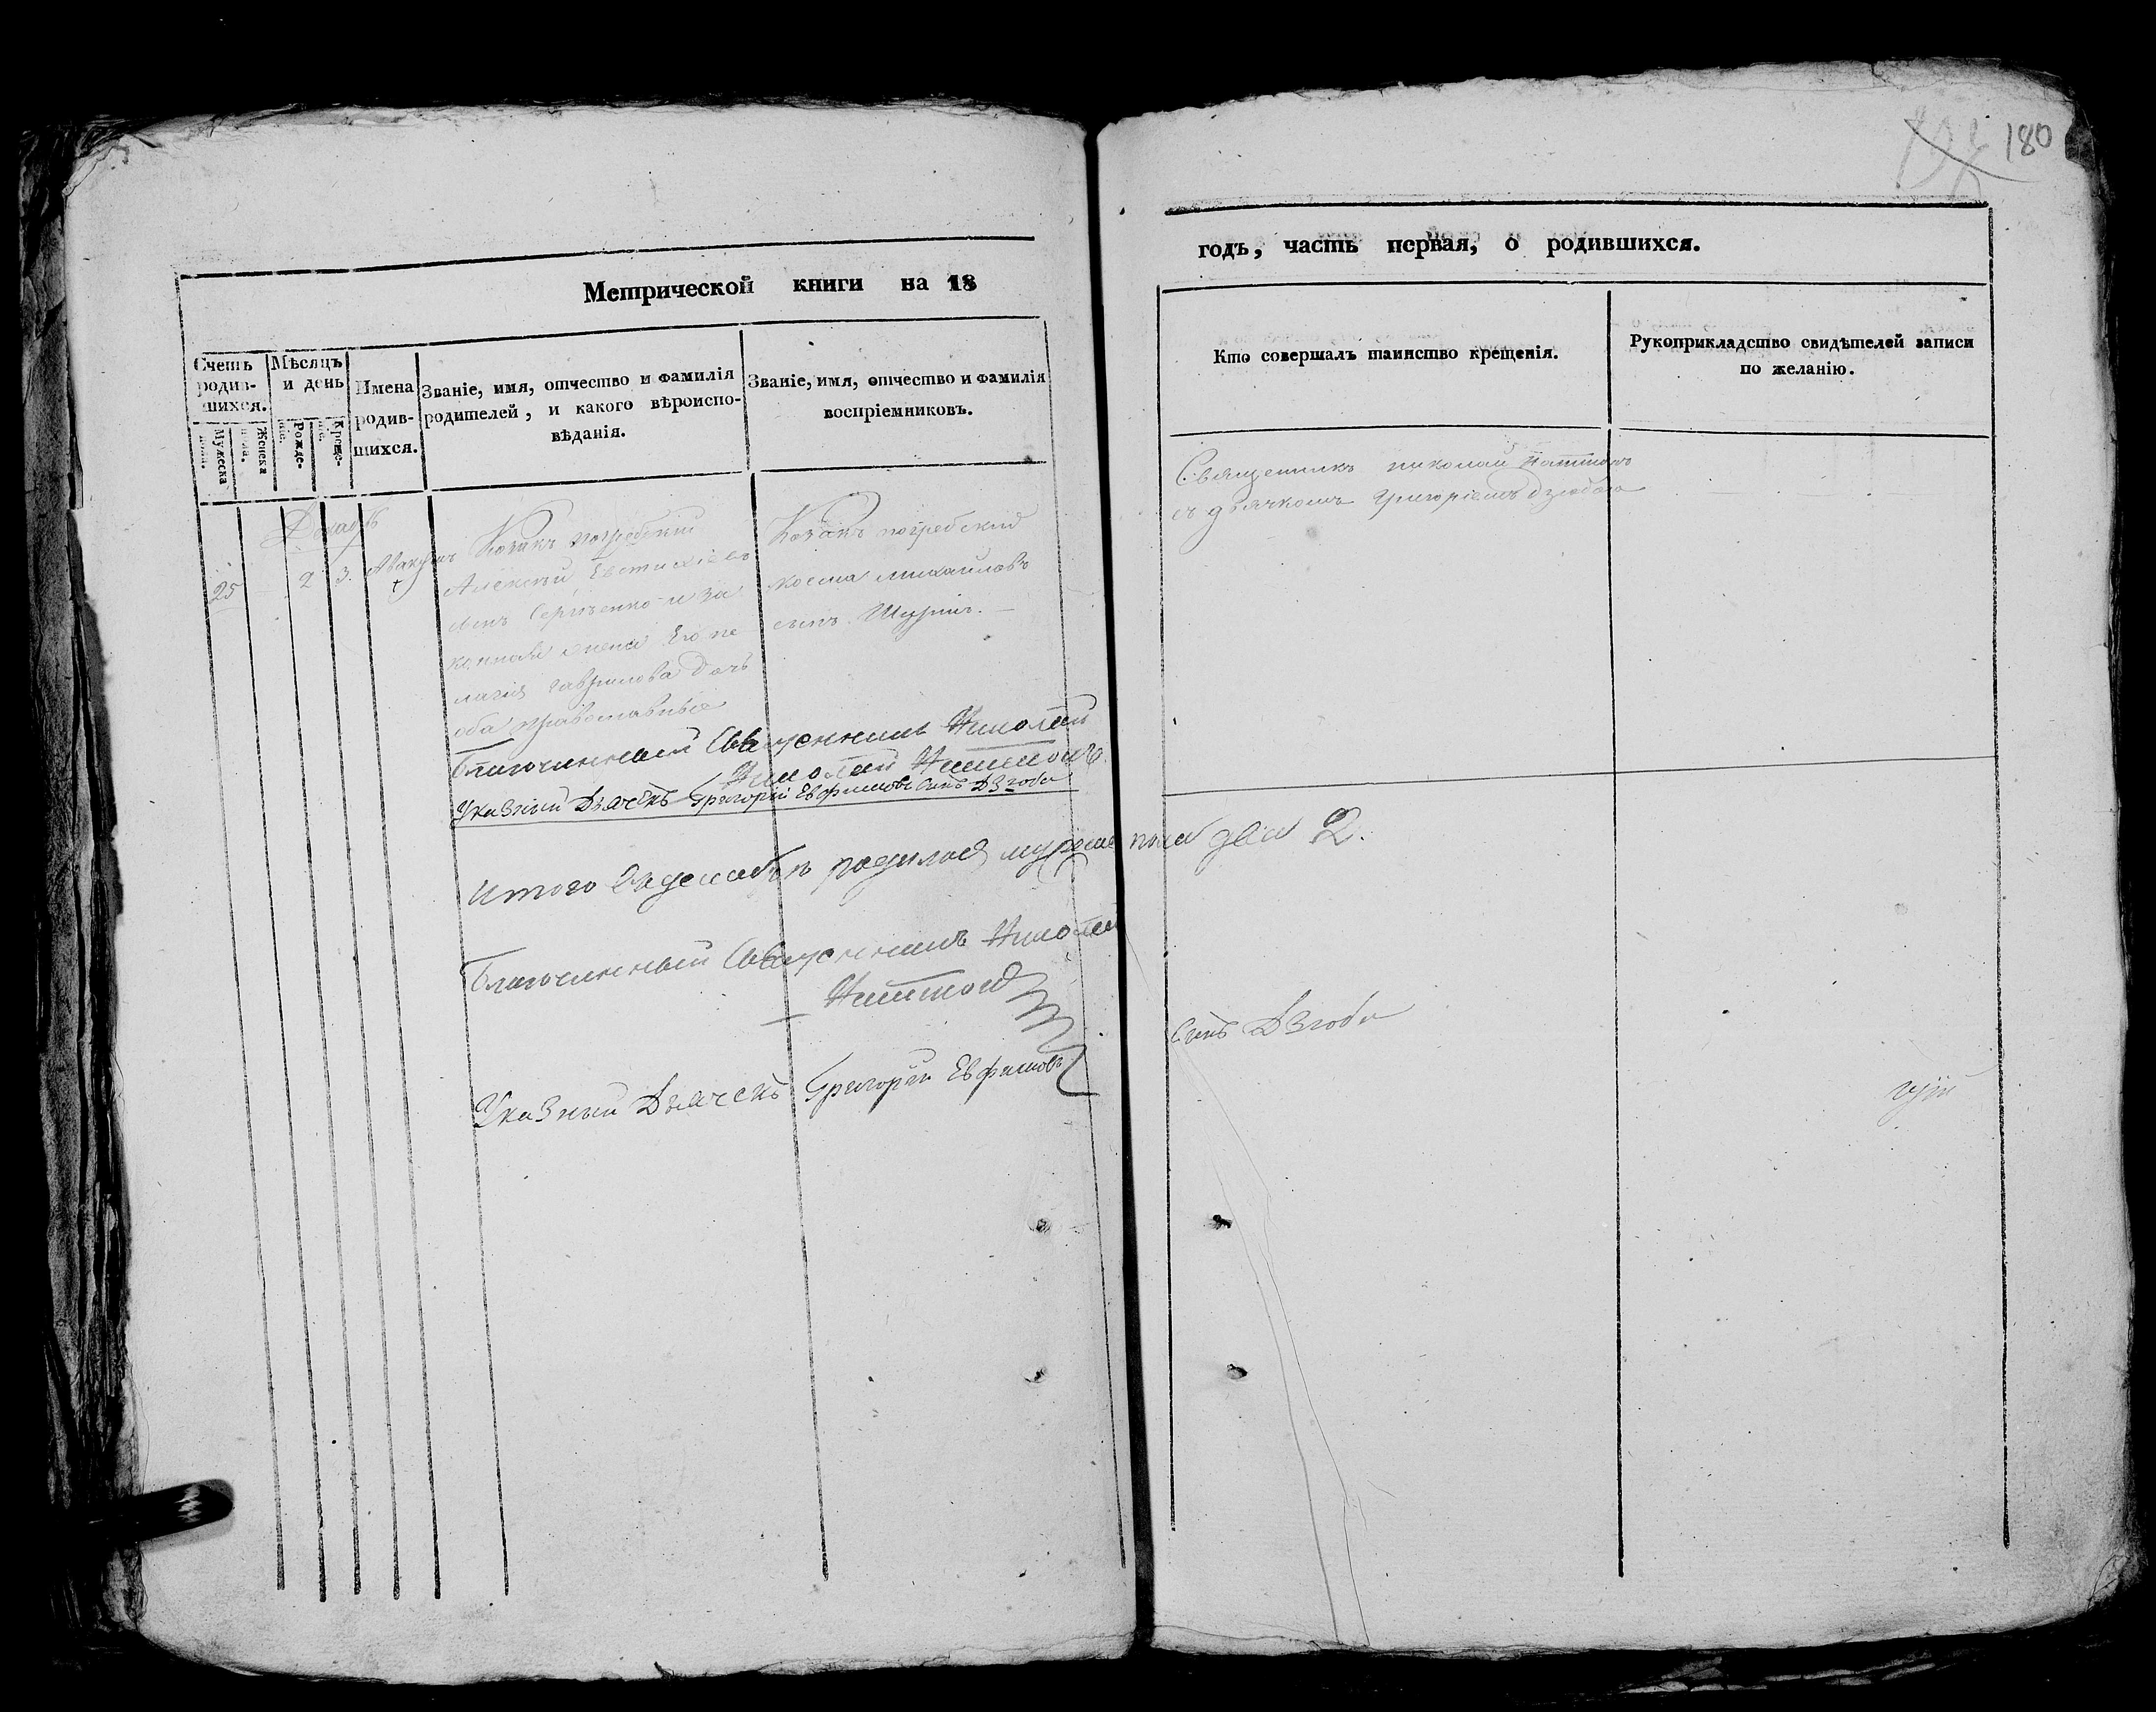 180
Метрической книги на 18
годъ, часть первая, о родившихся.
Счетъ родив-шихся.
Мужеска пола.
Женска пола.
Мѣсяцъ и день
Рожде-нія.
Креще-нія.
Имена родив-шихся.
Званіе, имя, отчество и фамилія родителей, и какого вѣроиспо-вѣданія.
Званіе, имя, отчество и фамилія воспріемниковъ.
Кто совершалъ таинство крещенія.
Рукоприкладство свидѣтелей записи по желанію.
Декабрь
25 2 3. Авакумъ
Козакъ погребский
Алексѣй Евстихіевъ
сынъ Сергѣенко и за
конная жена Его пе
лагія гаврилова дочь
оба православные
Козакъ погребский
косма михайловъ
сынъ
Священникъ николай
съ дьячкомъ Григоріемъ дзюбою
Благочинный Священникъ Николай
Николай
Указный Дьячекъ Григорій Евфимовъ Синъ Дзюба
Итого въ декабрѣ родилось мужеска пола два 2.
Благочинный Священникъ Николай
Указный Дьячекъ Григорій Евфимовъ Синъ Дзюба